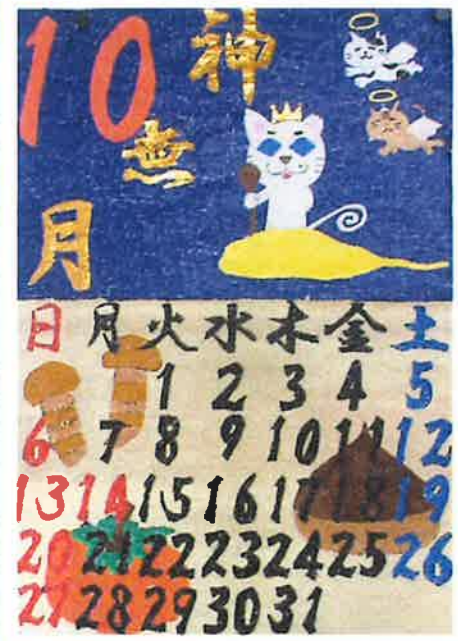 10
神
無
月
日 月 火 水 木 金 土
1 2 3 4 5
6 7 8 9 10 11 12
13 14 15 16 17 18 19
20 21 22 23 24 25 26
27 28 29 30 31